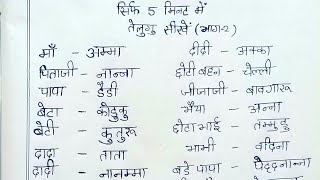 सिर्फ 5 मिनट में
तेलुगु सीखें (भाग-2)
माँ - अम्मा
पिताजी - नान्ना
पापा - डैडी
बेटा - कोडुकु
बेटी - कुतुरू
दादा - ताता
दादी - नानम्मा
दीदी - अक्का
छोटी बहन - चेल्ली
जीजाजी - बावगारू
भैया - अन्ना
छोटा भाई - तम्मुडु
भाभी - वदिना
बड़े पापा - पेद्दनान्ना